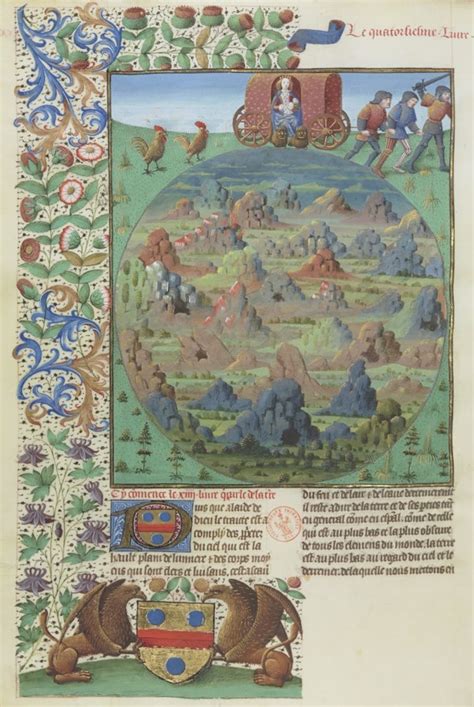 Le quatorsiesme Livre
Cy comence le xiiij livre q parle de la tre
Puis que a laide de
dieu le traicte est a
comply des
du ciel qui est la
haulte de lumiere et des corps
qui sont clers et luisans, cest
du feu et de lair et de leaue
il reste a dire de la terre et de ses
en general come en come de celle
qui est au plus bas et la plus obscure
de tous les elemens du monde, la terre
est au plus bas au regard du ciel et le
de laquelle nous mettons en